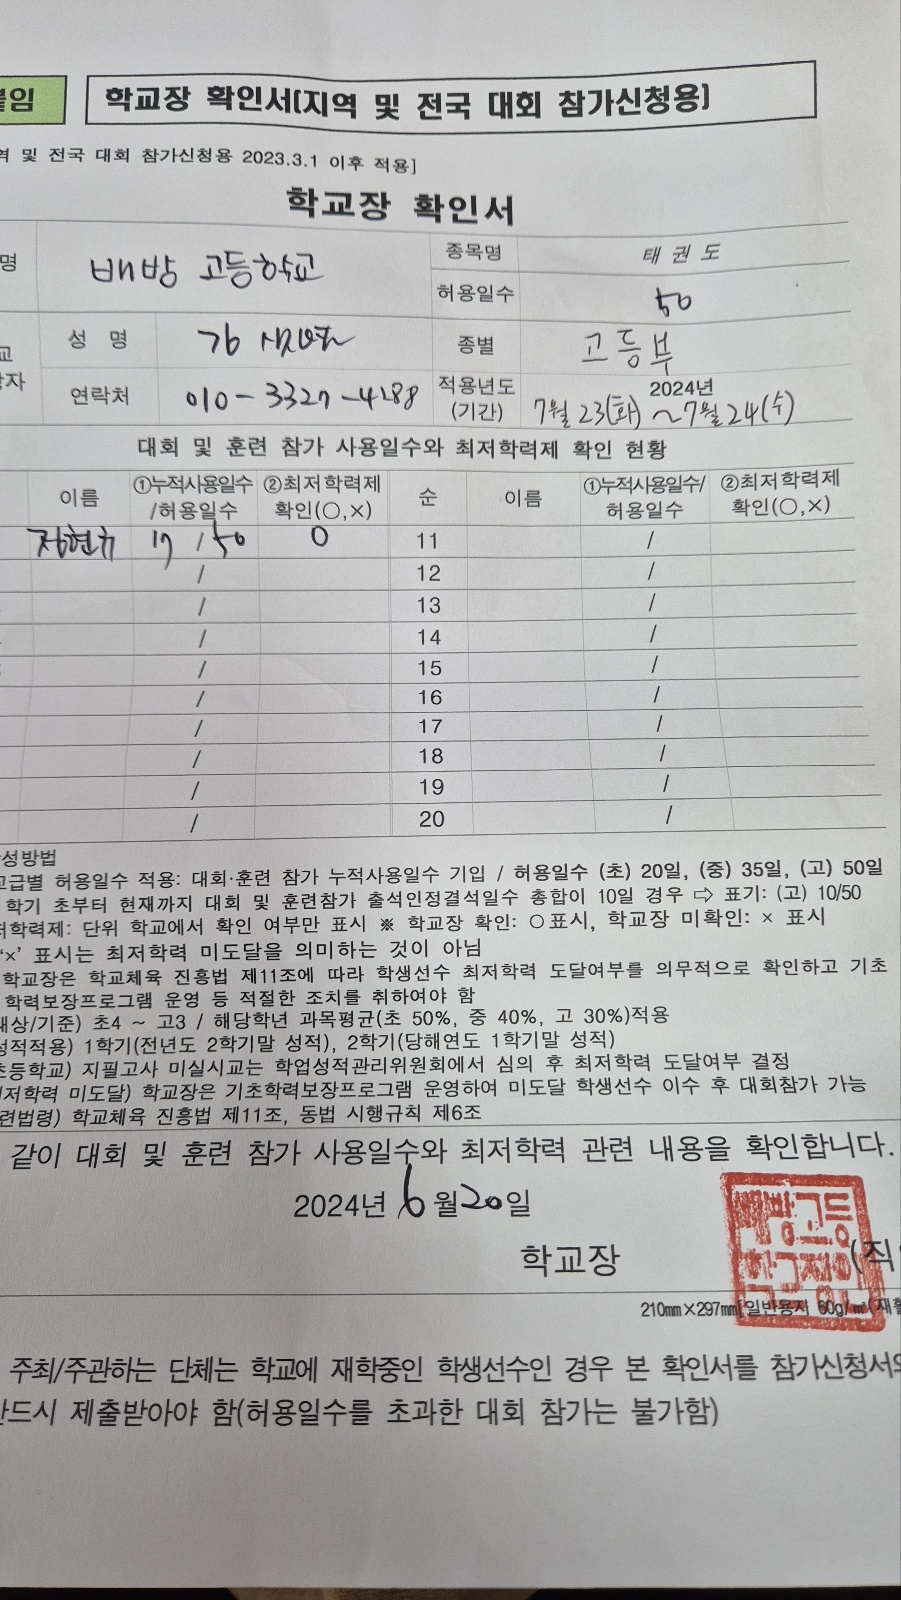 붙임 학교장 확인서(지역 및 전국 대회 참가신청용)
역 및 전국 대회 참가신청용 2023.3.1 이후 적용]
학교장 확인서
명 배방 고등학교 종목명 태권도
허용일수 50
교 성 명 종별 고등부
자 연락처 010-3327-4188 적용년도 (기간) 2024년 7월 23(화) ~7월 24(수)
대회 및 훈련 참가 사용일수와 최저학력제 확인 현황
이름 ①누적사용일수/허용일수 ②최저학력제 확인(○,×) 순 이름 ①누적사용일수/허용일수 ②최저학력제 확인(○,×)
17 / 50 O 11 /
/ 12 /
/ 13 /
/ 14 /
/ 15 /
/ 16 /
/ 17 /
/ 18 /
/ 19 /
/ 20 /
성방법
교급별 허용일수 적용: 대회·훈련 참가 누적사용일수 기입 / 허용일수 (초) 20일, (중) 35일, (고) 50일
학기 초부터 현재까지 대회 및 훈련참가 출석인정결석일수 총합이 10일 경우 ⇨ 표기: (고) 10/50
저학력제: 단위 학교에서 확인 여부만 표시 ※ 학교장 확인: ○표시, 학교장 미확인: × 표시
'×' 표시는 최저학력 미도달을 의미하는 것이 아님
학교장은 학교체육 진흥법 제11조에 따라 학생선수 최저학력 도달여부를 의무적으로 확인하고 기초
학력보장프로그램 운영 등 적절한 조치를 취하여야 함
대상/기준) 초4 ~ 고3 / 해당학년 과목평균(초 50%, 중 40%, 고 30%)적용
성적적용) 1학기(전년도 2학기말 성적), 2학기(당해연도 1학기말 성적)
초등학교) 지필고사 미실시교는 학업성적관리위원회에서 심의 후 최저학력 도달여부 결정
저학력 미도달) 학교장은 기초학력보장프로그램 운영하여 미도달 학생선수 이수 후 대회참가 가능
련법령) 학교체육 진흥법 제11조, 동법 시행규칙 제6조
같이 대회 및 훈련 참가 사용일수와 최저학력 관련 내용을 확인합니다.
2024년 6월 20일
학교장 (직
210㎜×297㎜[일반용지 60g/㎡(재활
주최/주관하는 단체는 학교에 재학중인 학생선수인 경우 본 확인서를 참가신청서와
반드시 제출받아야 함(허용일수를 초과한 대회 참가는 불가함)